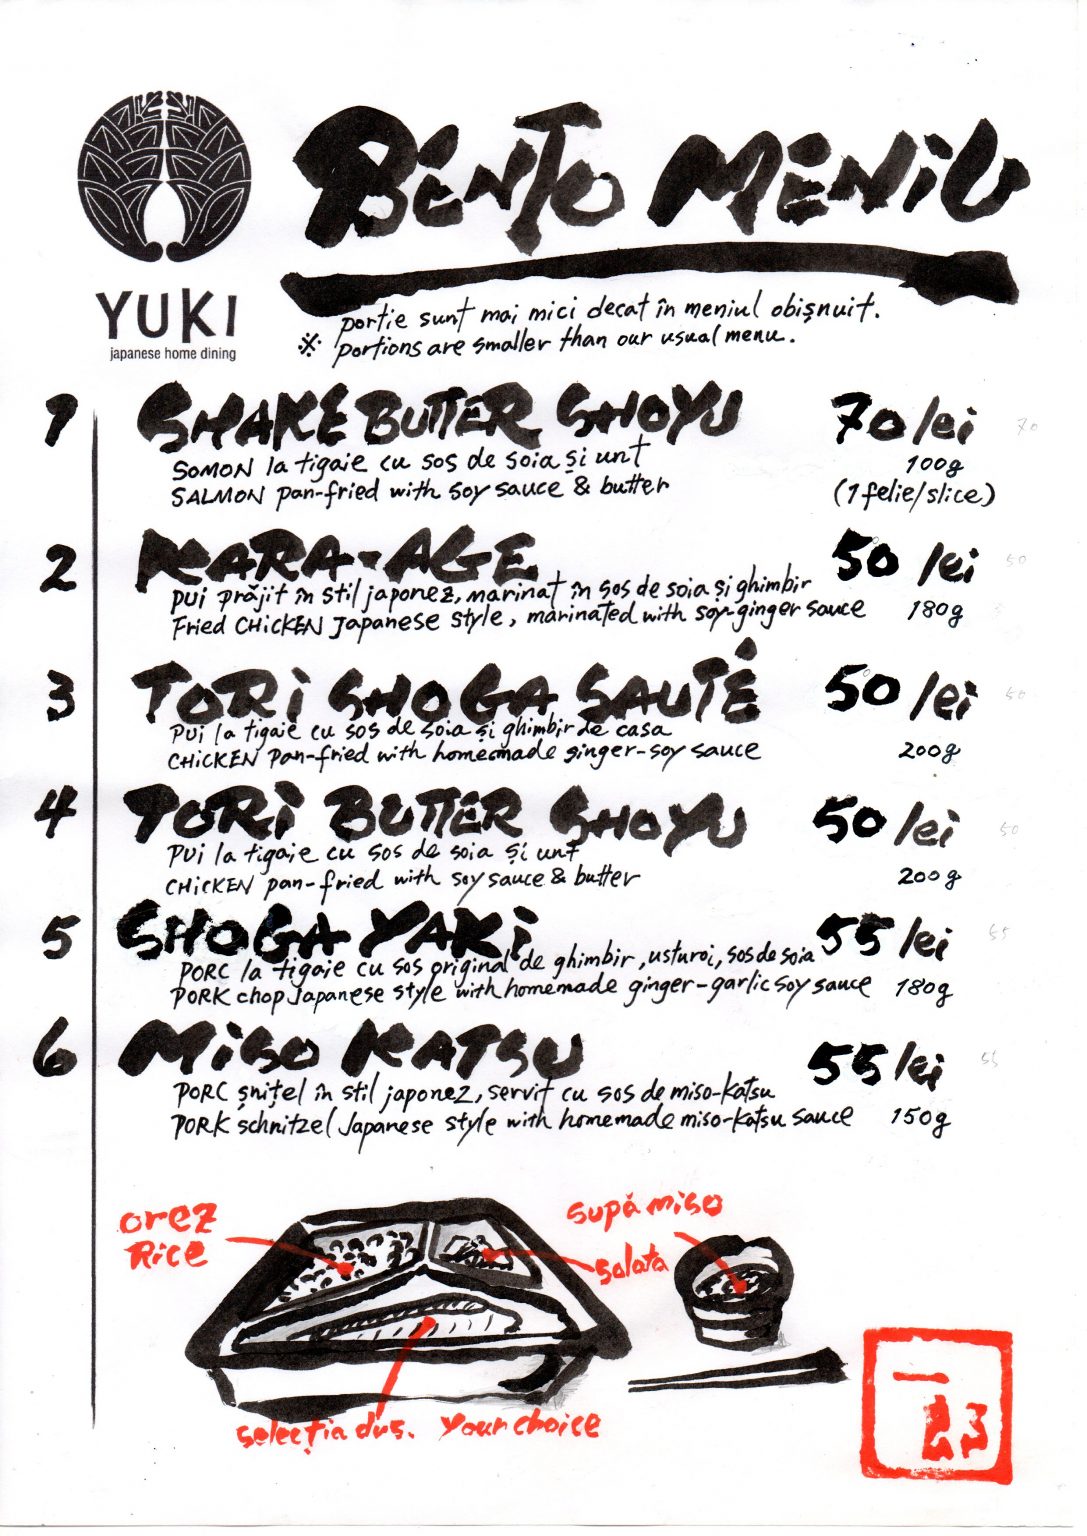 BENTO MENIU
YUKI
japanese home dining
portie sunt mai mici decat în meniul obișnuit.
※ portions are smaller than our usual menu.
1 SHAKE BUTTER SHOYU 70 lei
SOMON la tigaie cu sos de soia și unt 100g
SALMON pan-fried with soy sauce & butter (1 felie/slice)
2 KARA-AGE 50 lei
PUI prăjit în stil japonez, marinat în sos de soia și ghimbir
Fried CHICKEN Japanese style, marinated with soy-ginger sauce 180g
3 TORI SHOGA SAUTÉ 50 lei
PUI la tigaie cu sos de soia și ghimbir de casa
CHICKEN pan-fried with homemade ginger-soy sauce 200g
4 TORI BUTTER SHOYU 50 lei
PUI la tigaie cu sos de soia și unt
CHICKEN pan-fried with soy sauce & butter 200g
5 SHOGA YAKI 55 lei
PORC la tigaie cu sos original de ghimbir, usturoi, sos de soia
PORK chop Japanese style with homemade ginger-garlic soy sauce 180g
6 MISO KATSU 55 lei
PORC șnițel în stil japonez, servit cu sos de miso-katsu
PORK schnitzel Japanese style with homemade miso-katsu sauce 150g
orez
Rice
supă miso
salata
selecția dvs. Your choice